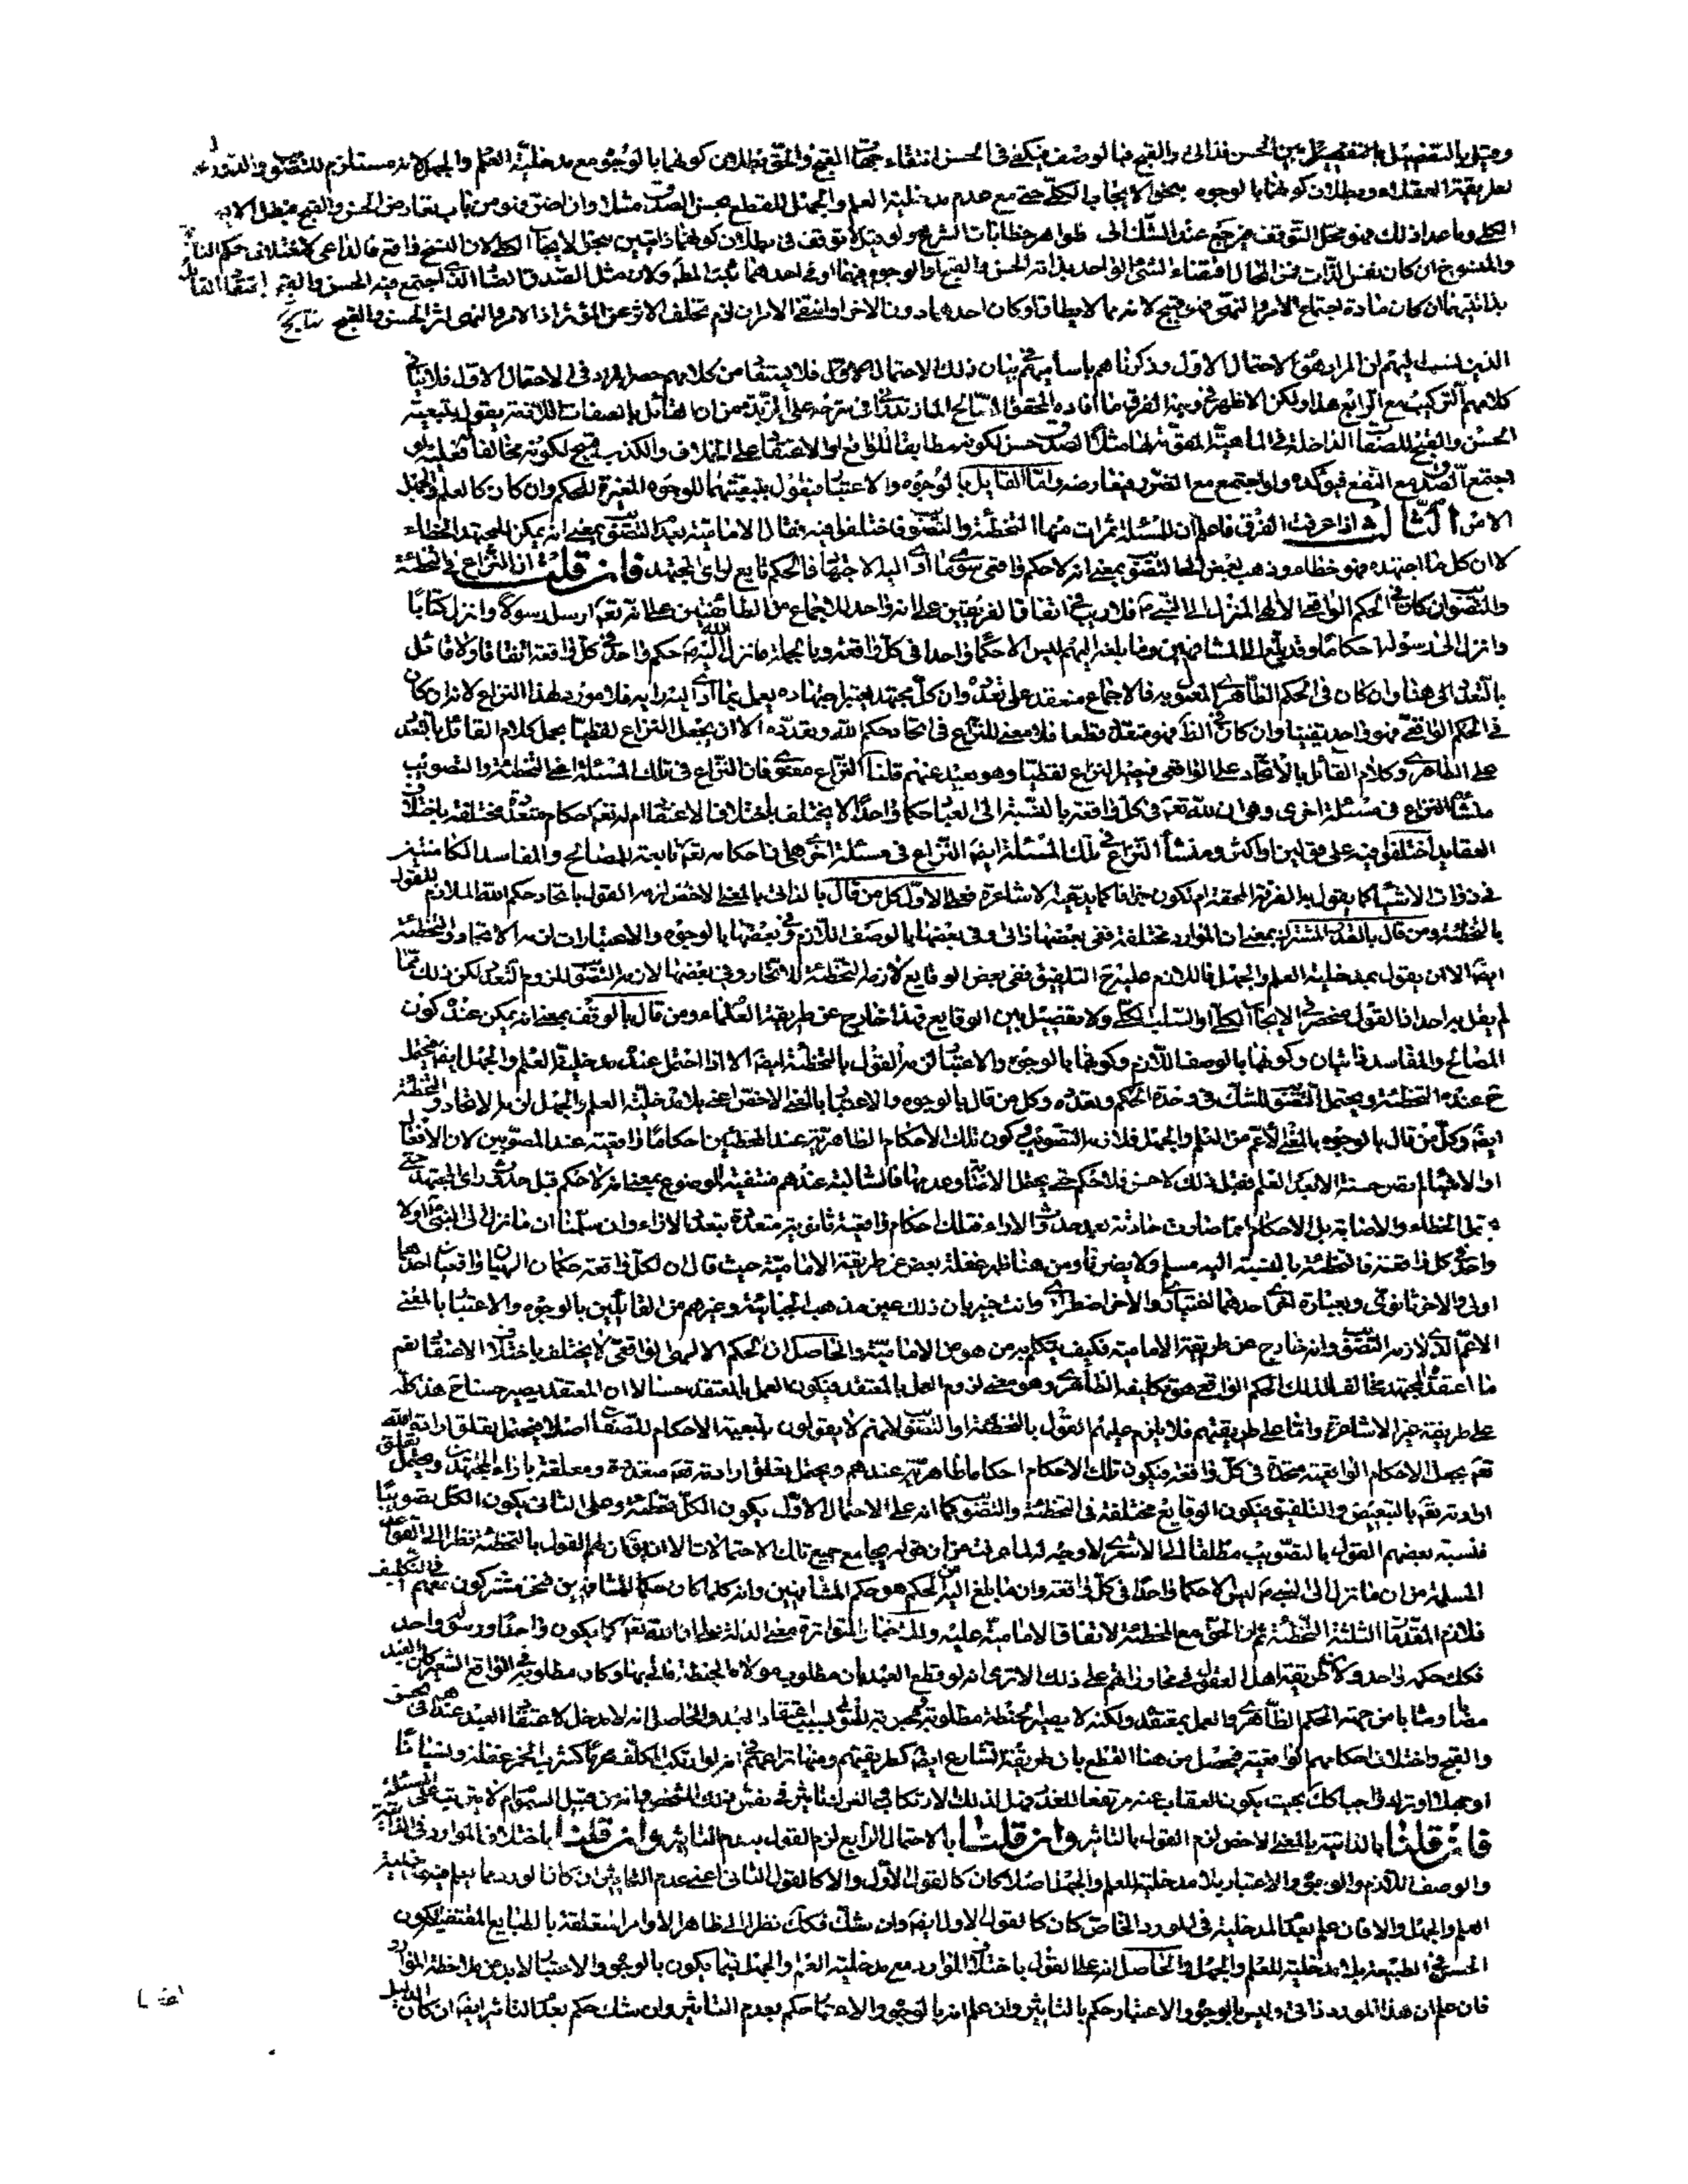 وقيل بالتفصيل بين الحسن فذاتي والقبح فبالوصف فيكفي في الحسن انتفاء جهة القبح والحق بطلان كونهما بالوجوه مع مدخلية العلم والجهل لانه مستلزم للتصويب
لطريقة العقلاء وبطلان كونهما بالوجوه بنحو الايجاب الكلي حتى مع عدم مدخلية العلم والجهل للقطع بحسن الصدق مثلا وان اضر فهو من باب تعارض الحسن والقبح فبطل
الكلي وما عدا ذلك فهو محل التوقف فيرجع عند الشك الى ظواهر خطابات الشرع ولو قيل لا توقف في بطلان كونهما ذاتيين بنحو الايجاب الكلي لان النسخ واقع فالداعي في حكم الناسخ
والمنسوخ ان كان نفس الذات فمن المحال اقتضاء الشيء الواحد بذاته الحسن والقبح او الوجوه فيهما او في احدهما ثبت المط ولان مثل الصدق الضار الذي اجتمع فيه الحسن والقبح
بذاتيتهما ان كان مادة اجتماع الامر والنهي فهو قبيح لانه مما لا يطاق او كان احدهما دون الاخر او انتفى الامران لزم تخلف الاثر عن المؤثر اذ الامر والنهي اثر الحسن والقبح
الذين نسب اليهم ان المراد هو الاحتمال الاول وذكرناهم باساميهم في بيان ذلك الاحتمال الاول فلا يستفاد من كلامهم حصر المراد في الاحتمال الاول فلا ينافي
كلامهم التركيب مع الرابع هذا ولكن الاظهر في وجه الفرق ما افاده المحقق الصالح المازندراني في شرحه على الزبدة من ان القائل بالصفات اللازمة يقول بتبعية
الحسن والقبح للصفات الداخلة في الماهية المحققة لها مثلا الصدق حسن لكونه مطابقا للواقع او الاعتقاد على الخلاف والكذب قبيح لكونه مخالفا فعليه لو
اجتمع الصدق مع النفع فيؤكده ولو اجتمع مع الضرر فيعارضه واما القائل بالوجوه والاعتبار فيقول بتبعيتهما للوجوه المغيرة للحكم وان كان كالعلم والجهل
الامر الثالث اذا عرفت الفرق فاعلم ان للمسئلة ثمرات منها التخطئة والتصويب فاختلفوا فيه فقال الامامية بعدم التصويب بمعنى انه يمكن للمجتهد الخطاء
لا ان كل ما اجتهده فهو خطاء وذهب بعض الى التصويب بمعنى انه لا حكم واقعي سوى ما ادى اليه الاجتهاد فالحكم تابع لراي المجتهد فان قلت ان النزاع في التخطئة
والتصويب ان كان في الحكم الواقعي الالهي المنزل الى النبي ص فلا ريب في اتفاق الفريقين على انه واحد للاجماع من الطائفتين على انه تعم ارسل رسولا وانزل كتابا
وانزل الى رسوله احكاما وقد بلغها الى المشافهين وما بلغه اليهم ليس الا حكما واحدا في كل واقعة وبالجملة ما نزل الله اليه ص حكم واحد في كل واقعة اتفاقا ولا قائل
بالتعدد الى هنا وان كان في الحكم الظاهري المعمول به فالاجماع منعقد على تعدده وان كل مجتهد يعتبر اجتهاده يعمل بما ادى اليه رايه فلا مورد لهذا النزاع لانه ان كان
في الحكم الواقعي فهو واحد يقينا وان كان في الظ فهو متعدد قطعا فلا معنى للنزاع في اتحاد حكم الله وتعدده الا ان يجعل النزاع لفظيا بحمل كلام القائل بالتعدد
على الظاهري وكلام القائل بالاتحاد على الواقعي فيصير النزاع لفظيا وهو بعيد عنهم قلنا النزاع معنوي فان النزاع في تلك المسئلة اعني التخطئة والتصويب
منشأه النزاع في مسئلة اخرى وهي ان لله تعم في كل واقعة بالنسبة الى العباد حكما واحدا لا يختلف باختلاف الاعتقاد ام له تعم احكام متعددة مختلفة باختلاف
العقايد اختلفوا فيه على قولين او اكثر ومنشأ النزاع في تلك المسئلة ايضا النزاع في مسئلة اخرى هي ان احكامه تعم تابعة للمصالح والمفاسد الكامنتين
في ذوات الاشياء كما يقول به الفرقة المحقة ام تكون جزافا كما يدعيه الاشاعرة فعلى الاول كل من قال بالذاتي بالمعنى الاخص لزمه القول باتحاد حكم الله الملازم للقول
بالتخطئة ومن قال بالقدر المشترك بمعنى ان الموارد مختلفة ففي بعضها ذاتي وفي بعضها بالوصف اللازم وفي بعضها بالوجوه والاعتبارات لزمه الاتحاد والتخطئة
ايضا الا ان يقول بمدخلية العلم والجهل فاللازم عليه ح التلفيق ففي بعض الوقايع لازمه التخطئة للاتحاد وفي بعضها لازمه التصويب للزوم التعدد لكن ذلك مما
لم يقل به احد اذ القول منحصر في الايجاب الكلي او السلب الكلي ولا تفصيل بين الوقايع فهذا خارج عن طريقة العلماء ومن قال بالوقف بمعنى انه يمكن عنده كون
المصالح والمفاسد ذاتيان وكونهما بالوصف اللازم وكونهما بالوجوه والاعتبار لزمه القول بالتخطئة ايضا الا اذا احتمل عنده مدخلية العلم والجهل ايضا فيحتمل
ح عنده التخطئة ويحتمل التصويب للشك في وحدة الحكم وتعدده وكل من قال بالوجوه والاعتبار بالمعنى الاخص اعني بلا مدخلية العلم والجهل لزمه الاتحاد والتخطئة
ايضا وكل من قال بالوجوه بالمعنى الاعم من العلم والجهل فلازمه التصويب وكون تلك الاحكام الظاهرية عند المخطئين احكاما واقعية عند المصوبين لان الافعال
او الاشياء لم تصر حسنة الا بعد العلم فقبل ذلك لا حسن فلا حكم حتى يحتمل الاصابة وعدمها فالسالبة عندهم منتفية الموضوع بمعنى انه لا حكم قبل حدوث راي المجتهد حتى
يحتمل الخطاء والاصابة بل الاحكام انما صارت حادثة بعد حدوث الاراء فتلك احكام واقعية ثانوية متعددة بتعدد الاراء وان سلمنا ان ما نزل الى النبي ص اولا
واحد في كل واقعة فالتخطئة بالنسبة اليه مسلم ولا يضرنا ومن هنا ظهر غفلة بعض عن طريقة الامامية حيث قال ان لكل واقعة حكمان الهيان واقعيان احدهما
اولي والاخر ثانوي وبعبارة اخرى احدهما اختياري والاخر اضطراري وانت خبير بان ذلك عين مذهب الجبائية وغيرهم من القائلين بالوجوه والاعتبار بالمعنى
الاعم الذي لازمه التصويب وانه خارج عن طريقة الامامية فكيف يتكلم به من هو من الامامية والحاصل ان الحكم الالهي الواقعي لا يختلف باختلاف الاعتقاد نعم
ما اعتقده المجتهد مخالفا لذلك الحكم الواقعي هو تكليفه الظاهري وهو معنى لزوم العمل بالمعتقد فيكون العمل بالمعتقد حسنا لا ان المعتقد يصير حسنا ح هذا كله
على طريقة غير الاشاعرة واما على طريقتهم فلا يلزم عليهم القول بالتخطئة او التصويب لانهم لا يقولون بتبعية الاحكام للصفات اصلا فيحتمل تعلق ارادة الله
تعم بجعل الاحكام الواقعية متحدة في كل واقعة فيكون تلك الاحكام احكاما ظاهرية عندهم ويحتمل تعلق ارادته تعم متعددة ومعلقة باراء المجتهدين ويحتمل تعلق
ارادته تعم بالتبعيض والتلفيق فيكون الوقايع مختلفة في التخطئة والتصويب كما انه على الاحتمال الاول يكون الكل تخطئة وعلى الثاني يكون الكل تصويبا
فنسبة بعضهم القول بالتصويب مطلقا الى الاشعري لا وجه له لما عرفت من ان قوله يجامع جميع تلك الاحتمالات الا ان يقال ان لهم القول بالتخطئة نظرا الى القول على
المسلم من ان ما نزل الى النبي ص ليس الا حكما واحدا في كل واقعة وان ما بلغ اليه من الحكم هو حكم المشافهين وانه كلما كان حكما للمشافهين فنحن مشتركون معهم في التكليف
فلازم المقدمات الثلثة التخطئة ثم ان الحق مع المخطئة لاتفاق الامامية عليه وللاخبار المتواترة معنى الدالة على ان الله تعم كما يكون واحدا ورسوله واحد
فكك حكمه واحد ولان طريقة اهل العقول في محاوراتهم على ذلك الا ترى انه لو قطع العبد بان مطلوب مولاه الحنطة فاتى بها وكان مطلوبه في الواقع الشعير كان العبد
مصابا مثابا من جهة الحكم الظاهري والعمل بمعتقده ولكنه لا يصير الحنطة مطلوبة محبوبة للمولى بسبب اعتقاد العبد والحاصل انه لا مدخل لاعتقاد العبد عندهم في الحسن
والقبح واختلاف احكامهم الواقعية فيحصل من هنا القطع بان طريقة الشارع ايضا كطريقتهم ومنها نزاعهم في انه لو ارتكب المكلف محرما كشرب الخمر غفلة ونسيانا
او جهلا او ترك واجبا كك بحيث يكون العقاب عنه مرتفعا للعذر فهل لذلك الارتكاب او الترك تاثير في نفس ذلك الشخص فانه من قبيل السموم ام لا يترتب على المسئلة
فان قلنا بالذاتية بالمعنى الاخص لزم القول بالتاثير وان قلنا بالاحتمال الرابع لزم القول بعدم التاثير وان قلنا باختلاف الموارد في الذاتية
والوصف اللازم والوجوه والاعتبار بلا مدخلية للعلم والجهل اصلا كان كالقول الاول والا كالقول الثاني اعني عدم التاثير ان كان المورد مما يعلم فيه مدخلية
العلم والجهل والا فان علم بعدم المدخلية في المورد الخاص كان كالقول الاول ايضا وان شك فكك نظرا الى ظاهر الاوامر المتعلقة بالطبايع المقتضي لكون
الحسن في الطبيعة بلا مدخلية للعلم والجهل والحاصل انه على القول باختلاف الموارد مع مدخلية العلم والجهل فيما يكون بالوجوه والاعتبار لابد من ملاحظة الموارد
فان علم ان هذا المورد ذاتي وليس بالوجوه والاعتبار حكم بالتاثير وان علم انه بالوجوه والاعتبار حكم بعدم التاثير وان شك حكم بعدم التاثير ايضا ان كان الدليل